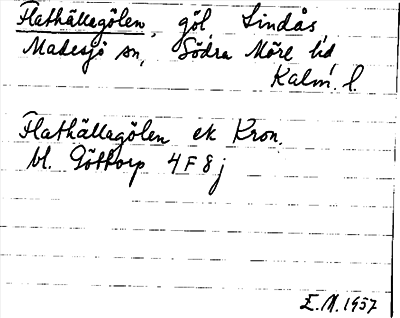 Flathällagölen, göl, Lindås
Madesjö sn, Södra Möre hd
Kalm. l.
Flathällagölen ek Kron.
bl. Göttorp 4F8j
E.M.1957